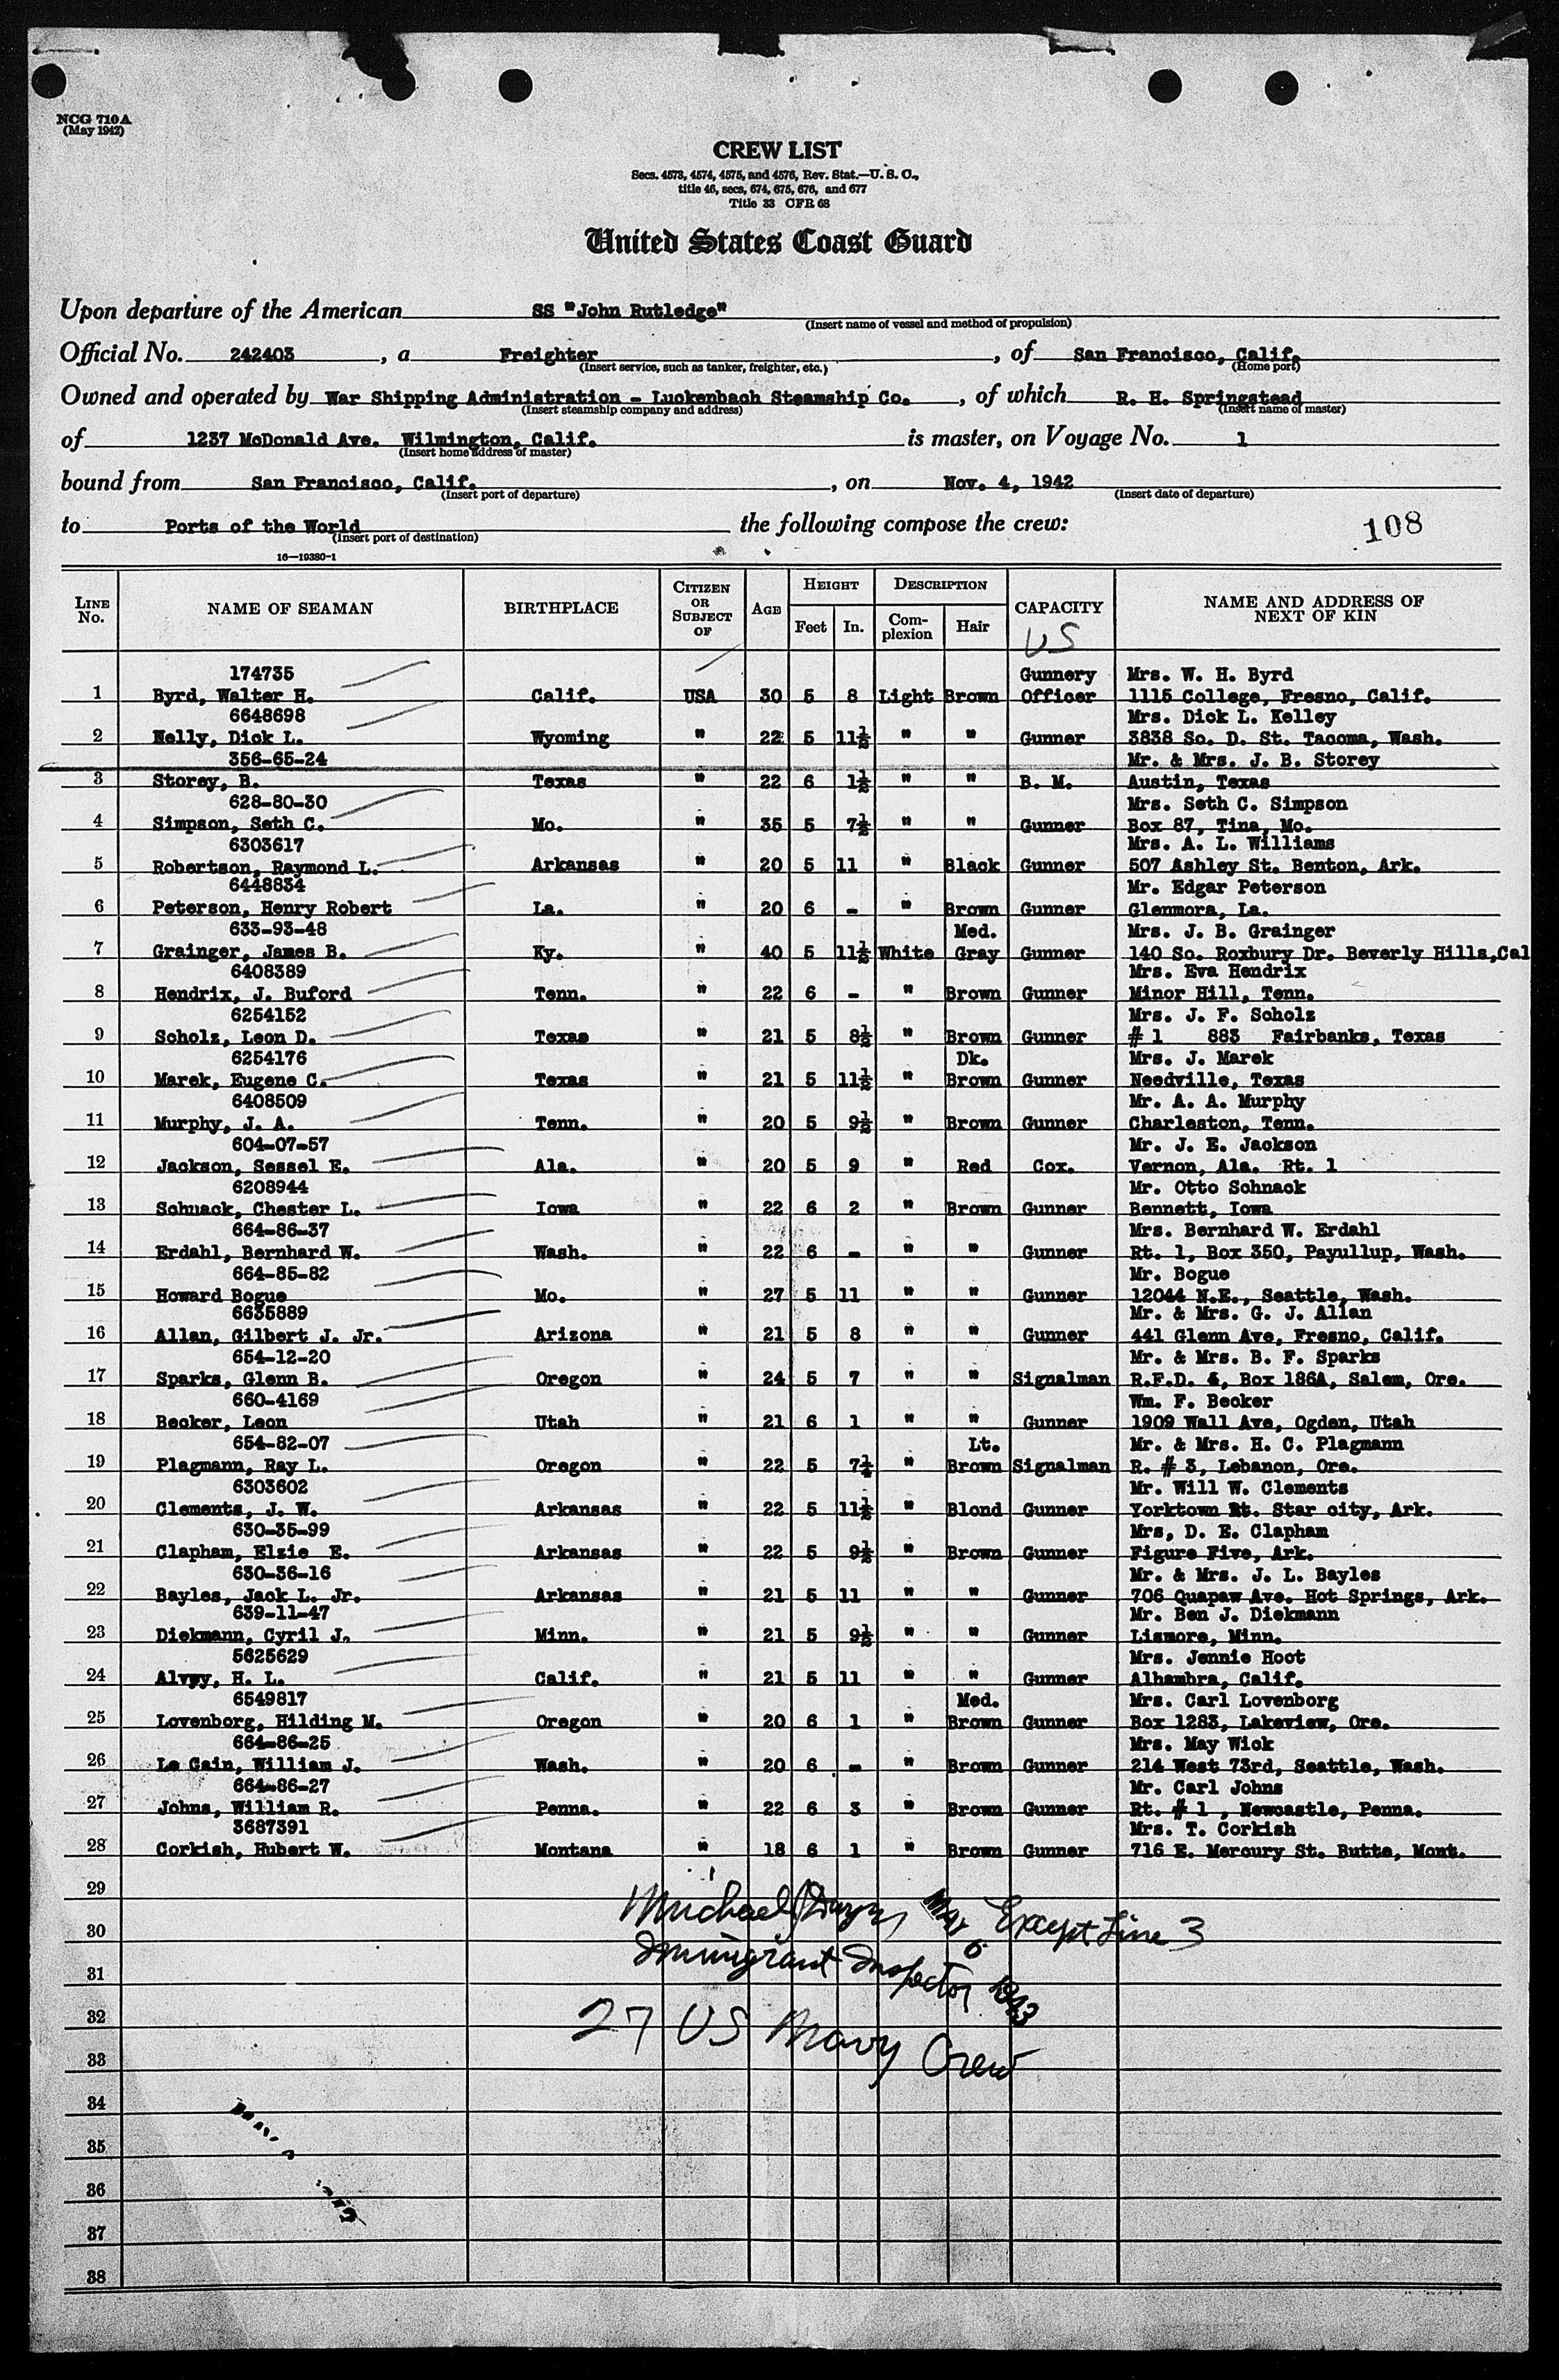 NCG 710A
(May 1942)
CREW LIST
Secs. 4573, 4574, 4575, and 4576, Rev. Stat.—U. S. C.,
title 46, secs, 674, 675, 676, and 677
Title 33 CFR 68
United States Coast Guard
Upon departure of the American SS "John Rutledge"
(Insert name of vessel and method of propulsion)
Official No. 242403 , a Freighter , of San Francisco, Calif.
(Insert service, such as tanker, freighter, etc.) (Home port)
Owned and operated by War Shipping Administration - Luckenbach Steamship Co. , of which R. H. Springstead
(Insert steamship company and address) (Insert name of master)
of 1237 McDonald Ave. Wilmington, Calif. is master, on Voyage No. 1
(Insert home address of master)
bound from San Francisco, Calif. , on Nov. 4, 1942
(Insert port of departure) (Insert date of departure)
to Ports of the World the following compose the crew: 108
(Insert port of destination)
16—19380-1
LINE No. NAME OF SEAMAN BIRTHPLACE CITIZEN OR SUBJECT OF AGE HEIGHT Feet In. DESCRIPTION Complexion Hair CAPACITY NAME AND ADDRESS OF NEXT OF KIN
US
174735 Gunnery Mrs. W. H. Byrd
1 Byrd, Walter H. Calif. USA 30 5 8 Light Brown Officer 1115 College, Fresno, Calif.
6648698 Mrs. Dick L. Kelley
2 Nelly, Dick L. Wyoming " 22 5 11½ " " Gunner 3838 So. D. St. Tacoma, Wash.
356-65-24 Mr. & Mrs. J. B. Storey
3 Storey, B. Texas " 22 6 1½ " " B. M. Austin, Texas
628-80-30 Mrs. Seth C. Simpson
4 Simpson, Seth C. Mo. " 35 5 7½ " " Gunner Box 87, Tina, Mo.
6303617 Mrs. A. L. Williams
5 Robertson, Raymond L. Arkansas " 20 5 11 " Black Gunner 507 Ashley St. Benton, Ark.
6448834 Mr. Edgar Peterson
6 Peterson, Henry Robert La. " 20 6 - " Brown Gunner Glenmora, La.
633-93-48 Med. Mrs. J. B. Grainger
7 Grainger, James B. Ky. " 40 5 11½ White Gray Gunner 140 So. Roxbury Dr. Beverly Hills,Cal
6408389 Mrs. Eva Hendrix
8 Hendrix, J. Buford Tenn. " 22 6 - " Brown Gunner Minor Hill, Tenn.
6254152 Mrs. J. F. Scholz
9 Scholz, Leon D. Texas " 21 5 8½ " Brown Gunner # 1 883 Fairbanks, Texas
6254176 Dk. Mrs. J. Marek
10 Marek, Eugene C. Texas " 21 5 11½ " Brown Gunner Needville, Texas
6408509 Mr. A. A. Murphy
11 Murphy, J. A. Tenn. " 20 5 9½ " Brown Gunner Charleston, Tenn.
604-07-57 Mr. J. E. Jackson
12 Jackson, Sessel E. Ala. " 20 5 9 " Red Cox. Vernon, Ala. Rt. 1
6208944 Mr. Otto Schnack
13 Schnack, Chester L. Iowa " 22 6 2 " Brown Gunner Bennett, Iowa
664-86-37 Mrs. Bernhard W. Erdahl
14 Erdahl, Bernhard W. Wash. " 22 6 - " " Gunner Rt. 1, Box 350, Payullup, Wash.
664-85-82 Mr. Bogue
15 Howard Bogue Mo. " 27 5 11 " " Gunner 12044 N.E., Seattle, Wash.
6635889 Mr. & Mrs. G. J. Allan
16 Allan, Gilbert J. Jr. Arizona " 21 5 8 " " Gunner 441 Glenn Ave, Fresno, Calif.
654-12-20 Mr. & Mrs. B. F. Sparks
17 Sparks, Glenn B. Oregon " 24 5 7 " " Signalman R.F.D. 4, Box 186A, Salem, Ore.
660-4169 Wm. F. Becker
18 Becker, Leon Utah " 21 6 1 " " Gunner 1909 Wall Ave, Ogden, Utah
654-82-07 Lt. Mr. & Mrs. H. C. Plagmann
19 Plagmann, Ray L. Oregon " 22 5 7½ " Brown Signalman R. # 3, Lebanon, Ore.
6303602 Mr. Will W. Clements
20 Clements, J. W. Arkansas " 22 5 11½ " Blond Gunner Yorktown Rt. Star city, Ark.
630-35-99 Mrs, D. E. Clapham
21 Clapham, Elzie E. Arkansas " 22 5 9½ " Brown Gunner Figure Five, Ark.
630-36-16 Mr. & Mrs. J. L. Bayles
22 Bayles, Jack L. Jr. Arkansas " 21 5 11 " " Gunner 706 Quapaw Ave. Hot Springs, Ark.
639-11-47 Mr. Ben J. Diekmann
23 Diekmann, Cyril J. Minn. " 21 5 9½ " " Gunner Lismore, Minn.
5625629 Mrs. Jennie Hoot
24 Alvey, H. L. Calif. " 21 5 11 " " Gunner Alhambra, Calif.
6549817 Med. Mrs. Carl Lovenborg
25 Lovenborg, Hilding M. Oregon " 20 6 1 " Brown Gunner Box 1283, Lakeview, Ore.
664-86-25 Mrs. May Wick
26 Le Gain, William J. Wash. " 20 6 - " Brown Gunner 214 West 73rd, Seattle, Wash.
664-86-27 Mr. Carl Johns
27 Johns, William R. Penna. " 22 6 3 " Brown Gunner Rt. # 1 , Newcastle, Penna.
3687391 Mrs. T. Corkish
28 Corkish, Hubert W. Montana " 18 6 1 " Brown Gunner 716 E. Mercury St. Butte, Mont.
29
Michael May 6 1943 Except Line 3
30
Immigrant Inspector
31
32
27 US Navy Crew
33
34
35
36
37
38